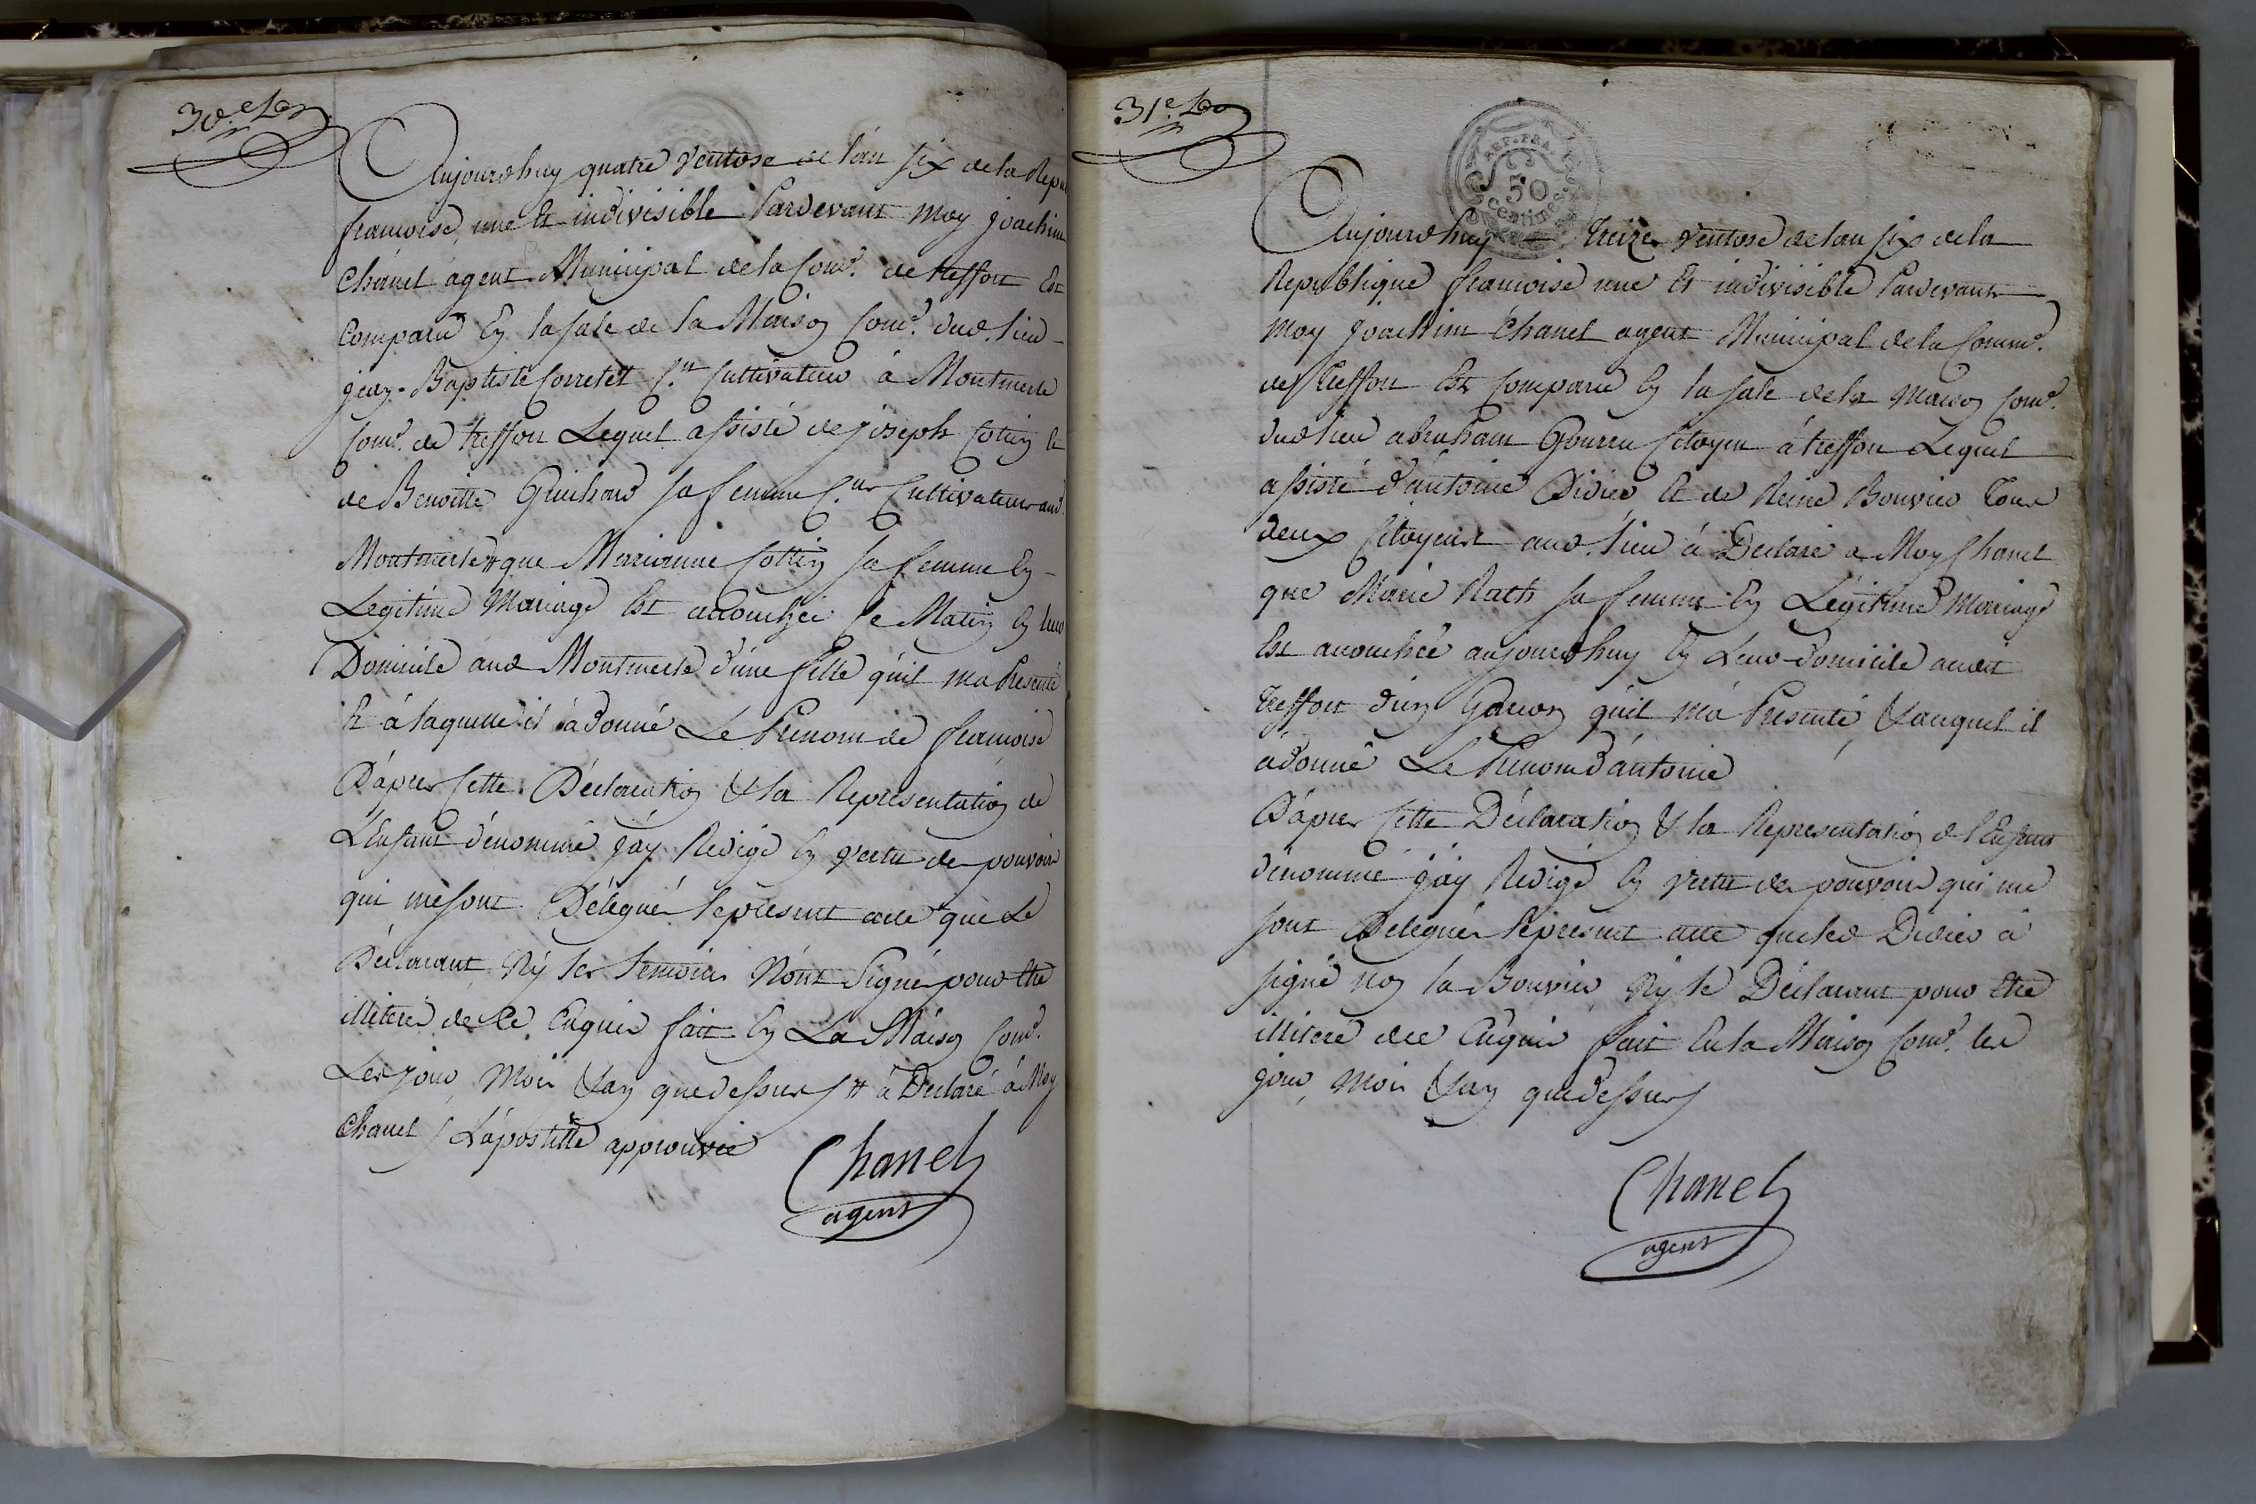 30.e
Aujourdhuy quatre Ventose de l'an six de la Repu
francoise, une Et indivisible Pardevant moy joachim
Chanel agent Municipal de la Com.e de treffort Est
Comparu En la sale de la Maison Com.e dud. lieu
jean-Baptiste Corretet C.en Cultivateur à Montmerle
Com.e de treffort Lequel assisté de joseph Cottin Et
de Benoitte Guichard sa femme C.ens Cultivateurs aud.
Montmerle # que Marianne Cottin sa femme En
Legitime Mariage Est accouchée Ce Matin En leur
Domicile aud Montmerle d'une fille qu'il ma Presenté
Et à laquelle il à donné Le Prenom de francoise
D'apres Cette Déclaration & la Representation de
L'Enfant dénommé j'ay Redigé En Vertu de pouvoirs
qui me sont Délegués le présent acte que Le
Déclarant Ny les temoins N'ont Signé pour Etre
illiterés de Ce Enquis fait En La Maison Com.e
Les jour, Mois & an que dessus # à Declaré à Moy
Chanel / L'apostille approuvée
Chanel
agent
31.e
REP. FRA.
50
centimes
Aujourdhuy treize Ventose de l'an six de la
Republique francoise une Et indivisible Pardevant
moy Joachim Chanel agent Municipal de la Comm.e
de Treffort Est Comparu En la sale de la Maison Com.e
dud lieu abraham Citoyen à treffort Lequel
assisté d'antoine Didier Et de Reine Bouvier Tous
deux Citoyens aud. lieu à Declaré a Moy Chanel
que Marie Rath sa femme En Légitime Mariage
Est accouchée aujourdhuy En Leur domicile audit
treffort d'un Garcon qu'il m'à Presenté, & auquel il
à donné Le Prenom d'antoine
D'apres Cette Déclaration & la Representation de l'Enfant
dénommé j'ay Redigé En Vertu de pouvoirs qui me
sont Delegués le present acte que led Didier à
signé non la Bouvier, Ny le Déclarant pour Etre
illiteré de ce Enquis fait En la Maison Com.e les
jour, Mois & an que dessus
Chanel
agent